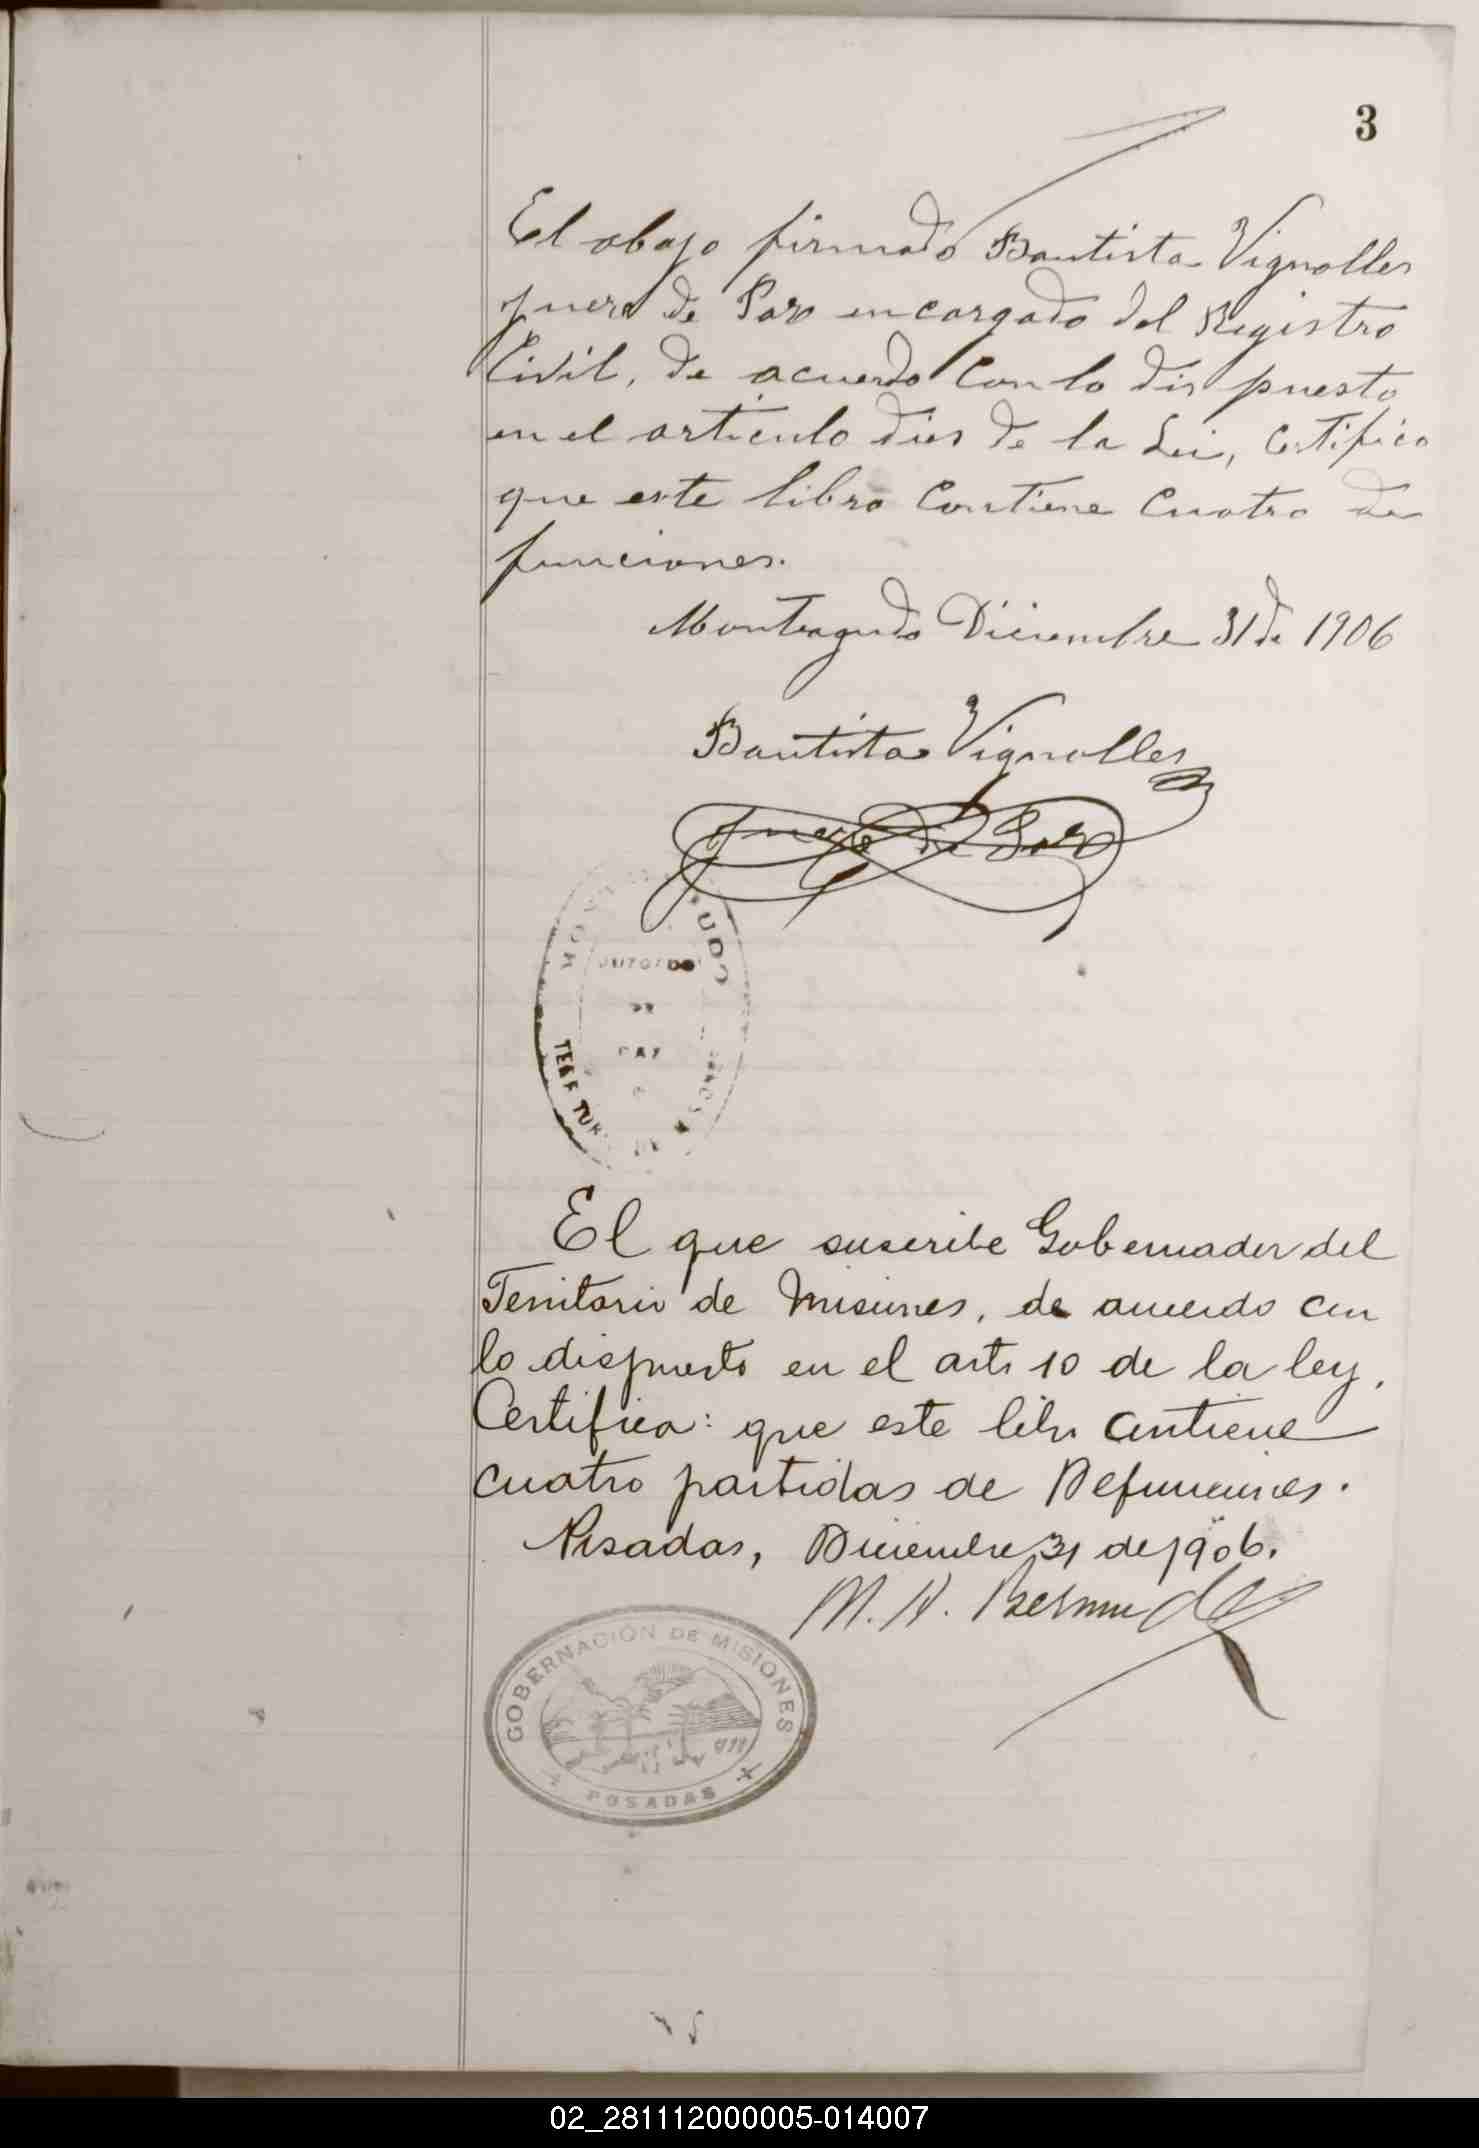 3
El abajo firmado Bautista Vignolles
juez de Paz encargado del Registro
Civil, de acuerdo con lo dis puesto
en el articulo dies de la Lei, Certifico
que este libro Contiene Cuatro de
funciones.
Monteagudo Diciembre 31 de 1906
Bautista Vignolles
juez de Paz
UDO
JUZGADO
DE
PAZ
El que suscribe Gobernador del
Territorio de Misiones, de acuerdo con
lo dispuesto en el art. 10 de la ley,
Certifica: que este libro contiene
cuatro partidas de Defunciones.
Posadas, Diciembre 31 de 1906.
GOBERNACIÓN DE MISIONES
POSADAS
02_281112000005-014007